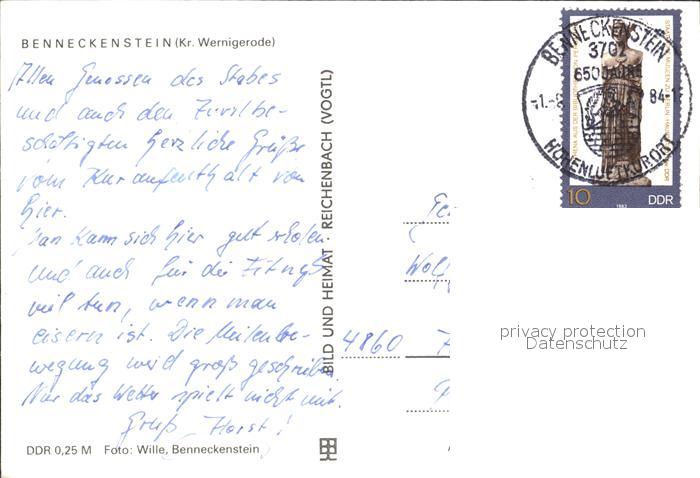 BENNECKENSTEIN (Kr. Wernigerode)
Allen Genossen des Stabes
und auch den Zivilbe-
schäftigten herzliche Grüße
vom Kuraufenthalt von
hier.
Man kann sich hier gut erholen
und auch für die Fitneß
viel tun, wenn man
eisern ist. Die Meilenbe-
wegung wird groß geschrieben.
Nur das Wetter spielt nicht mit.
Gruß Horst!
DDR 0,25 M Foto: Wille, Benneckenstein
BILD UND HEIMAT REICHENBACH (VOGTL)
BENNECKENSTEIN
3702
650 JAHRE
-1.-8 84-1
HÖHENLUFTKURORT
STAATLICHE MUSEEN ZU BERLIN
10 1983 DDR
4860
privacy protection
Datenschutz